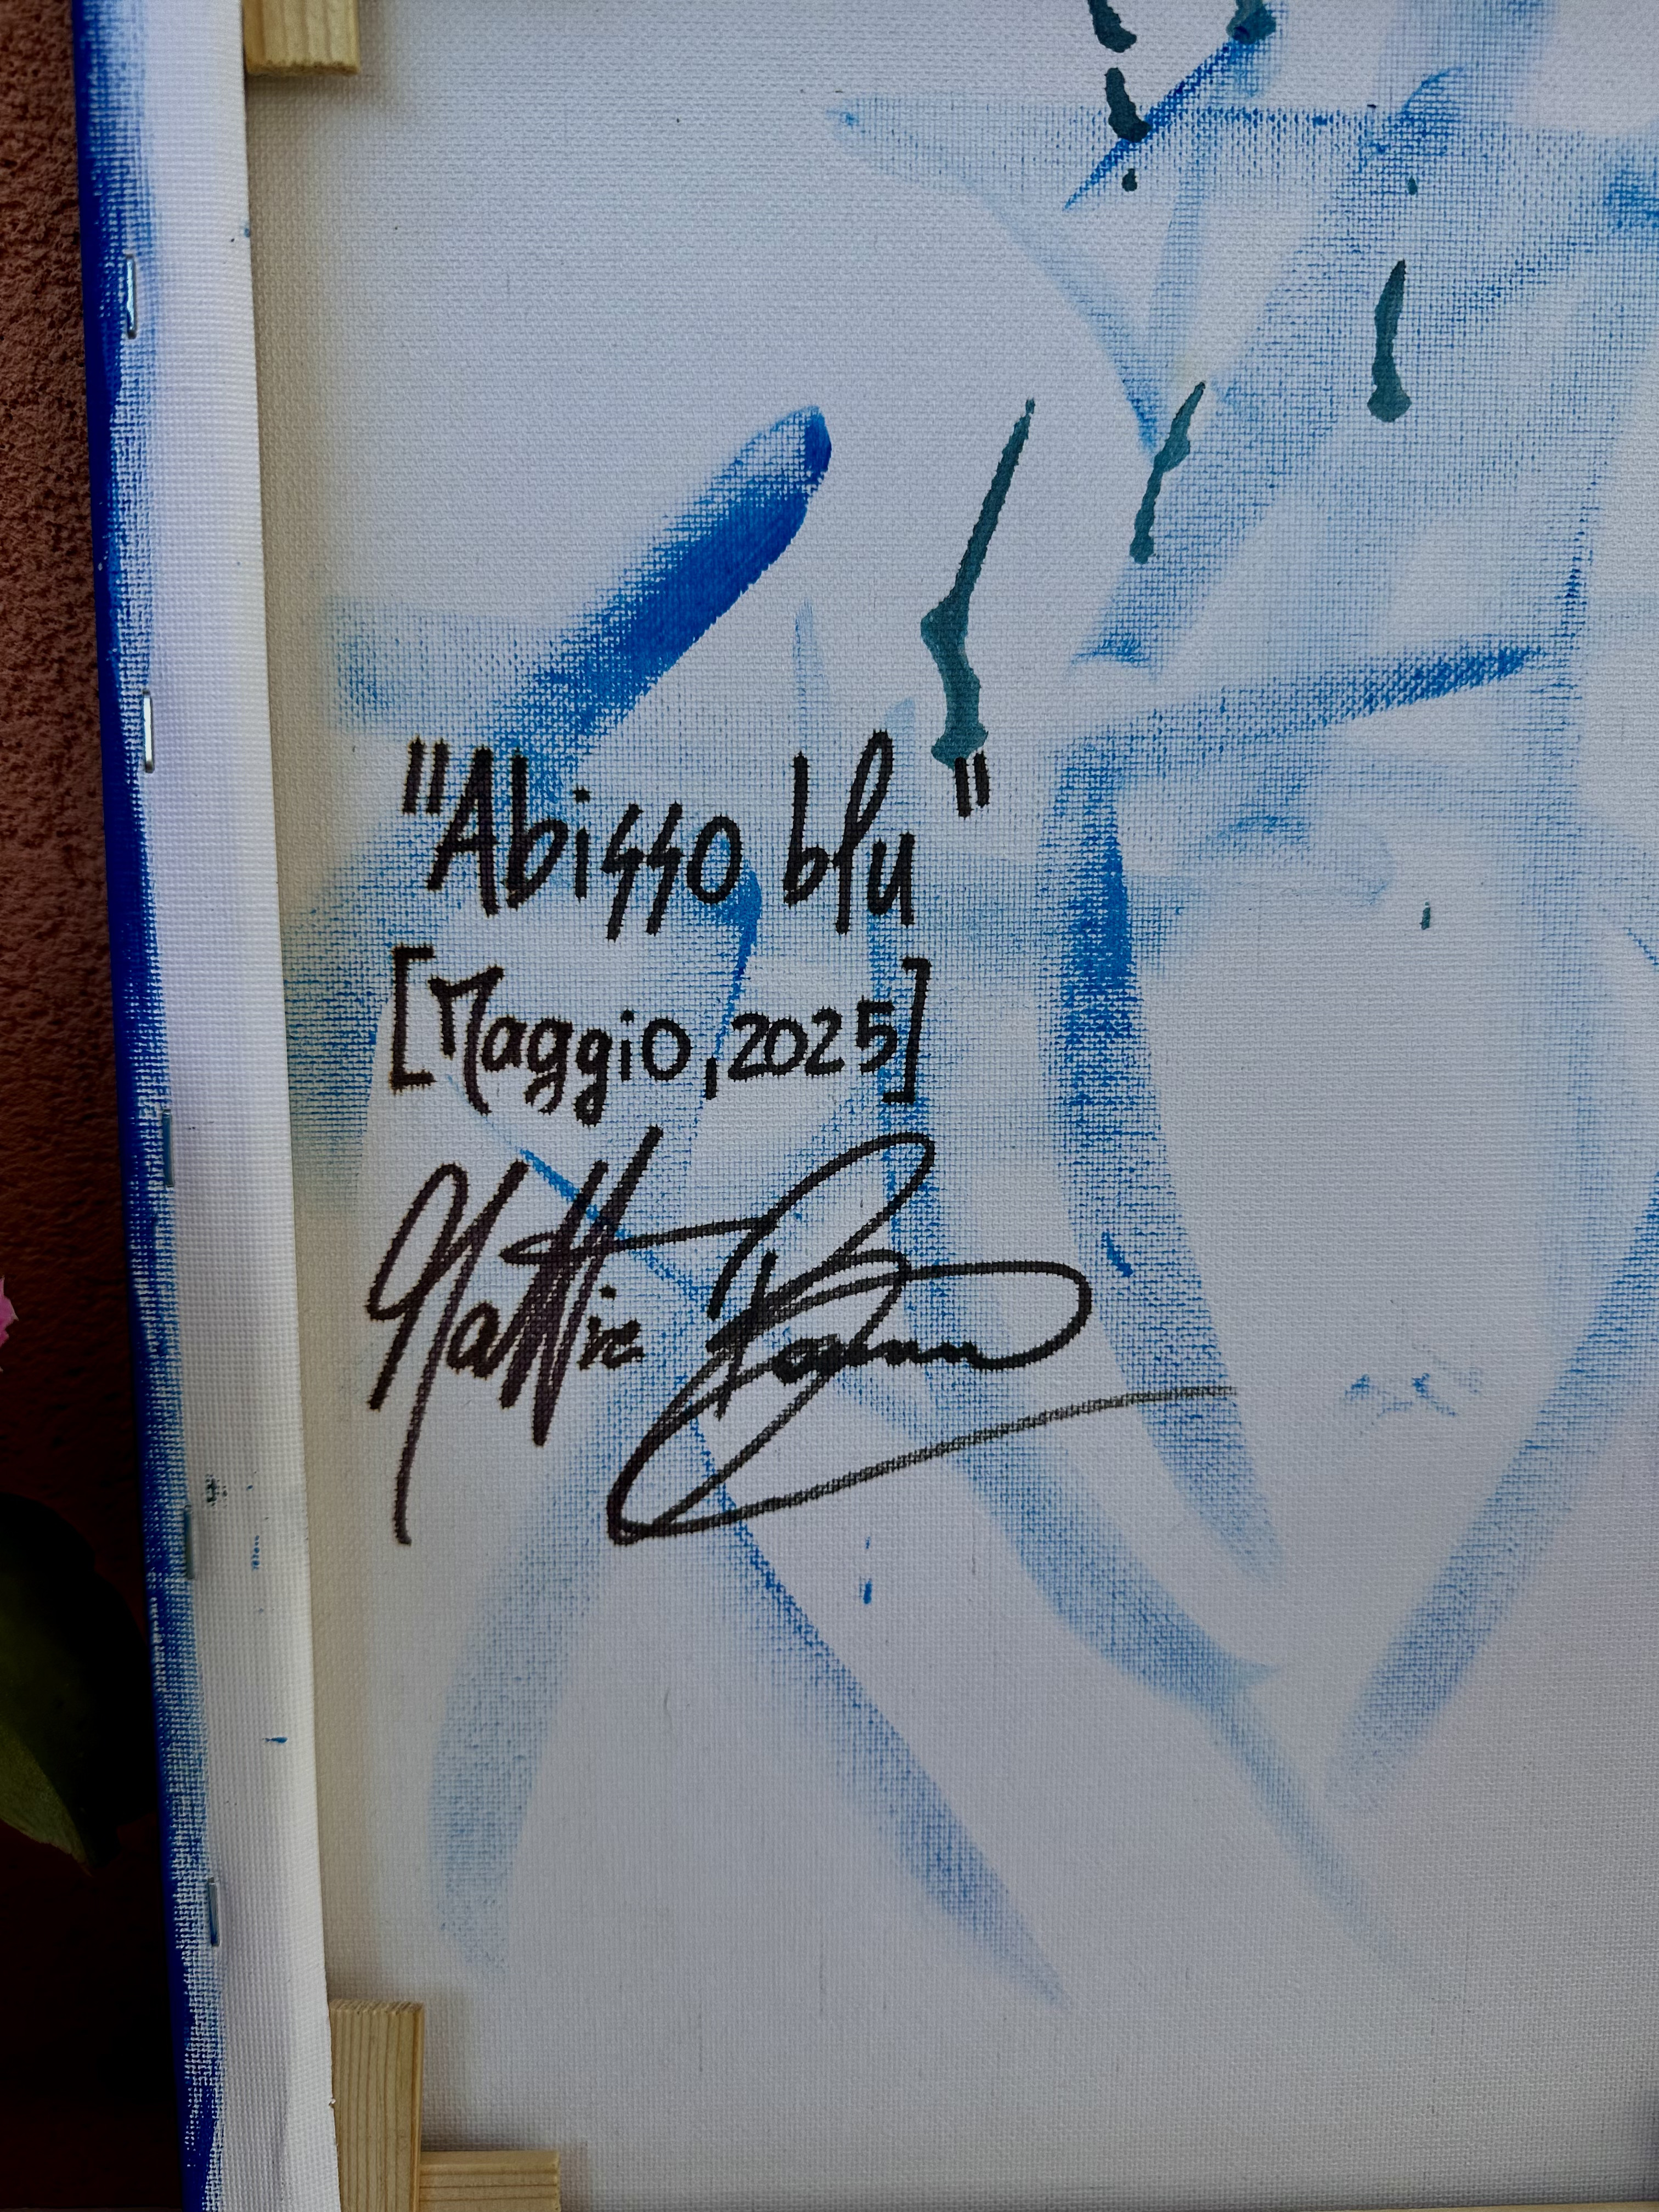 "Abisso blu"
[Maggio, 2025]
Mattia